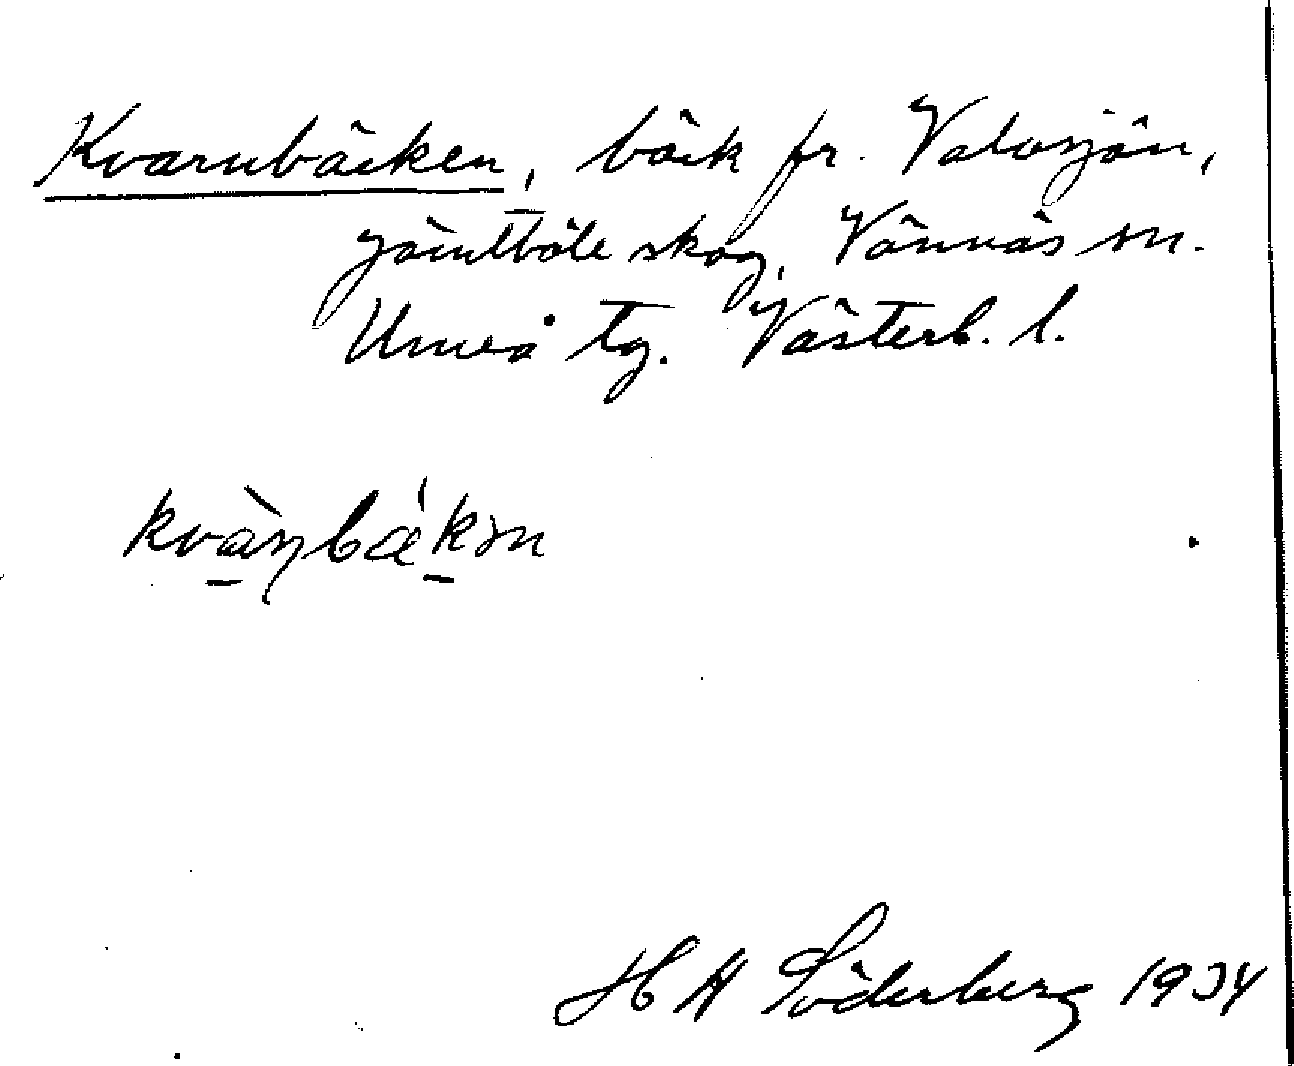 Kvarnbäcken, bäck fr. Valasjön,
Jämtböle skog, Vännäs sn.
Umeå tg. Västerb. l.
kvàɳbǽkən
H A Söderberg 1934